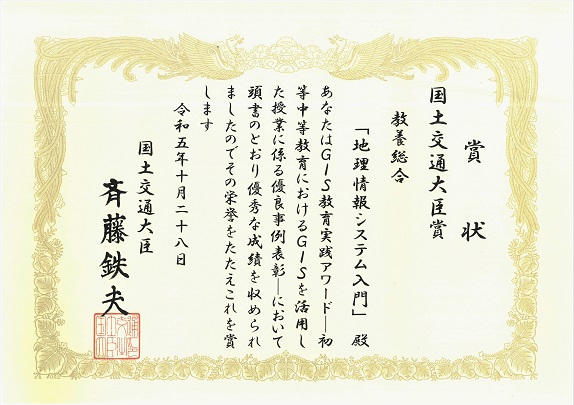 賞状
国土交通大臣賞
教養総合
「地理情報システム入門」殿
あなたはGIS教育実践アワード―初
等中等教育におけるGISを活用し
た授業に係る優良事例表彰―において
頭書のとおり優秀な成績を収められ
ましたのでその栄誉をたたえこれを賞
します
令和五年十月二十八日
国土交通大臣
斉藤鉄夫